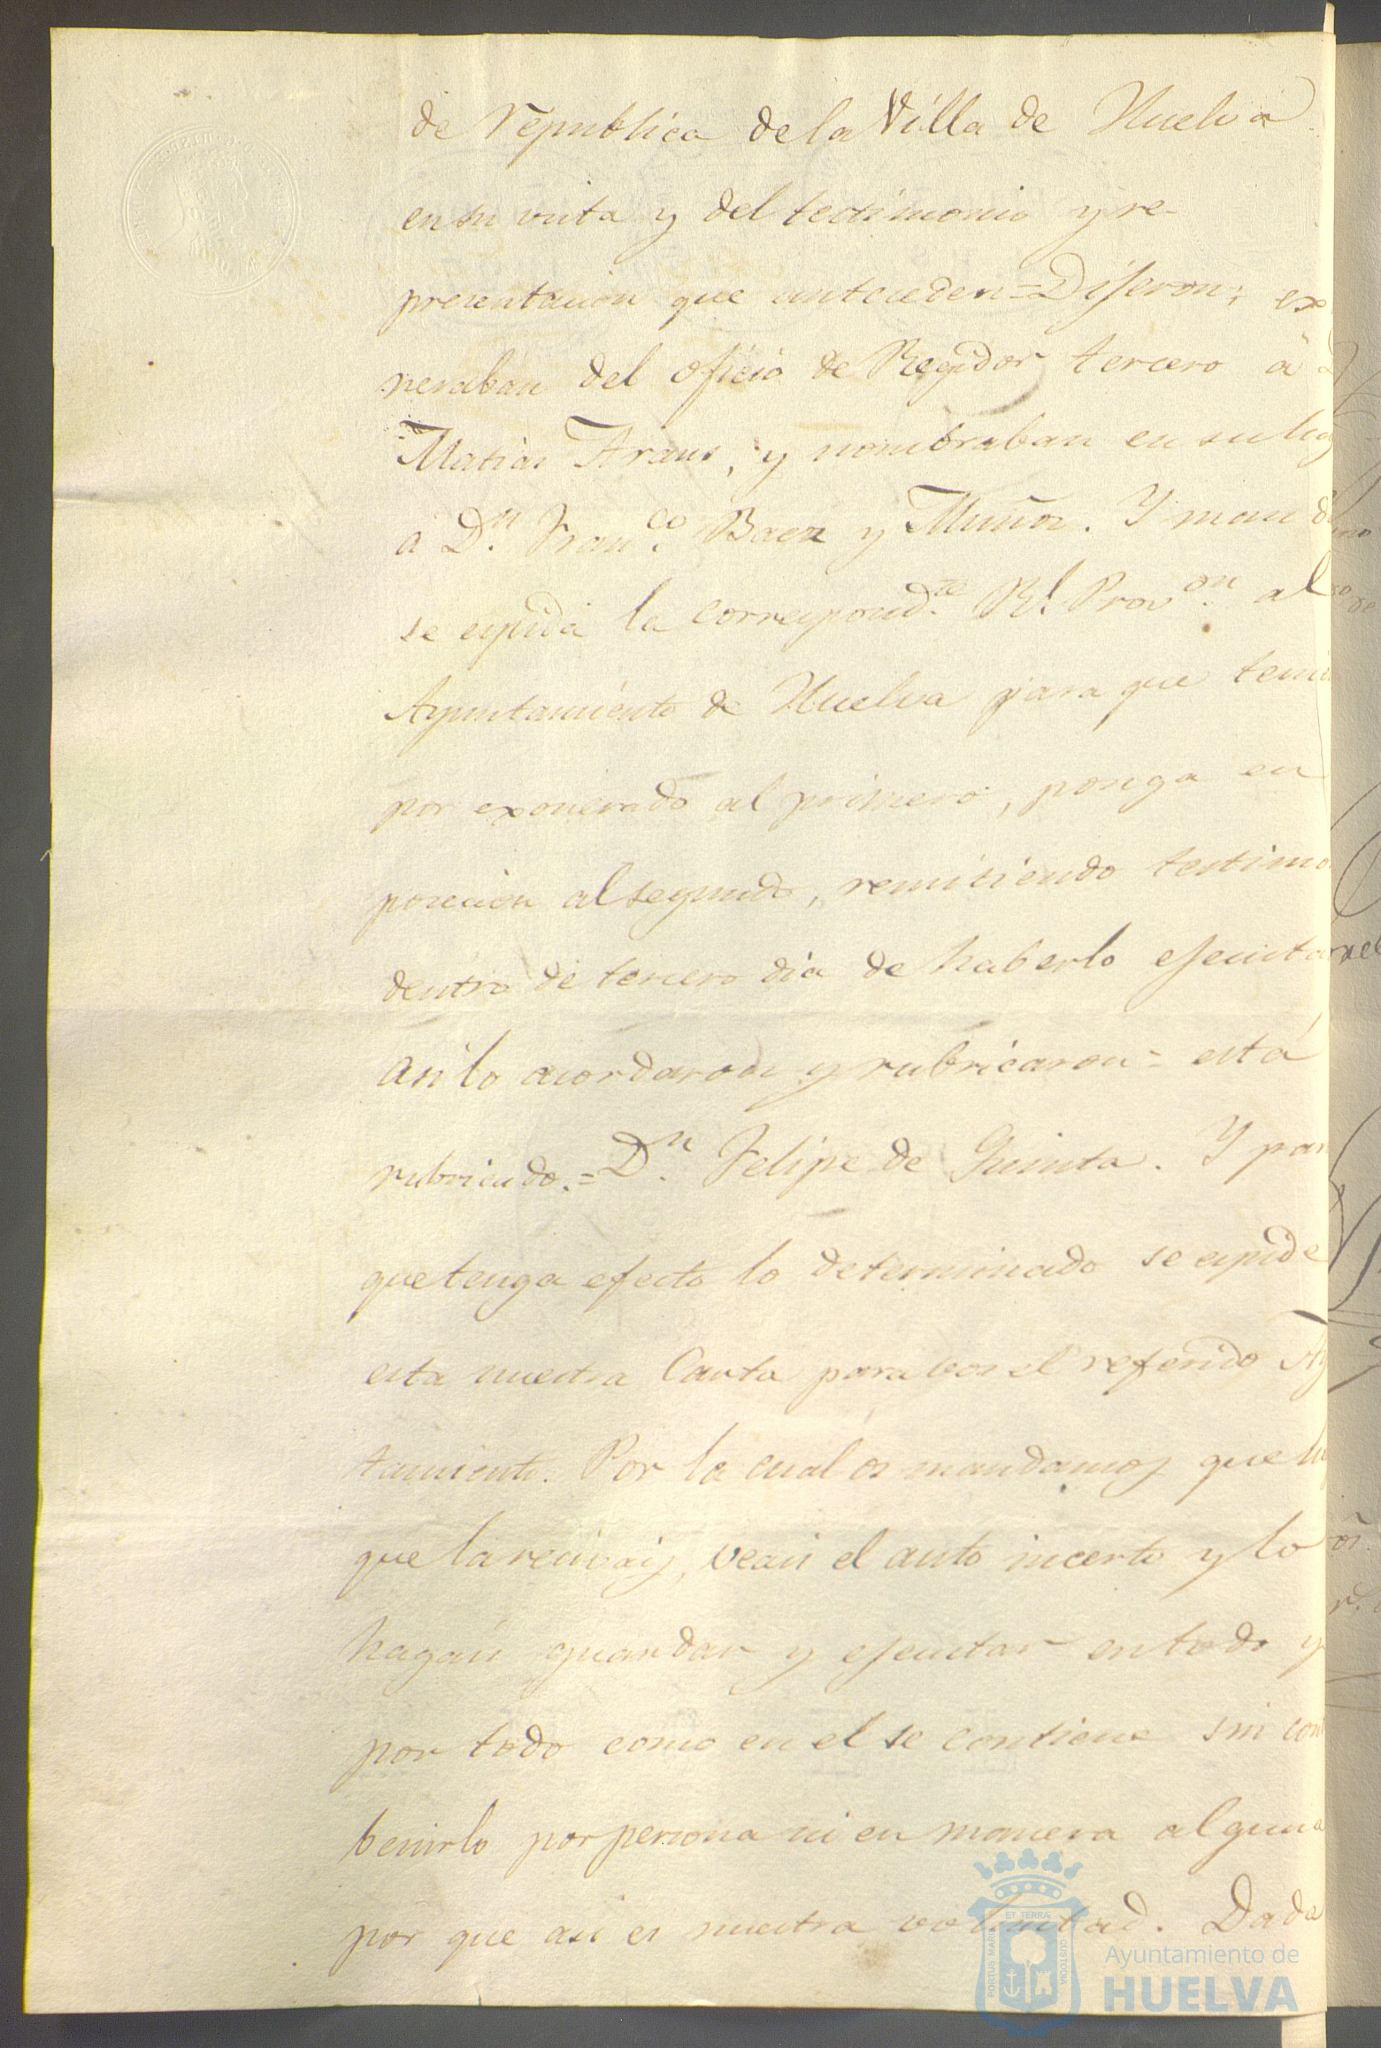 de republica de la Villa de Huelva
en su vista y del testimonio y re-
presentacion que anteceden = Dijeron; ex
neraban del oficio de Regidor tercero à
Matias Araus, y nombraban en su lug
a Dn. Franco. Baez y Muñoz. Y mand
se espida la correspondte. Rl. Provon. al
Ayuntamiento de Huelva para que teni
por exonerado al primero, ponga en
posecion al segundo, remitiendo testimo
dentro de tercero dia de haberlo ejecuta
asi lo acordaron y rubricaron = está
rubricado. = Dn. Felipe de Quinta. Y par
que tenga efecto lo determinado se espide
esta nuestra Carta para vos el referido Ay
tamiento. Por la cual os mandamos que lu
que la recivais, veais el auto incerto y lo
hagais guardar y ejecutar en todo y
por todo como en el se contiene sin con
benirlo por persona ni en manera alguna
por que asi es nuestra voluntad. Dada
PORTUS MARIS ET TERRÆ CUSTODIA
Ayuntamiento de
HUELVA